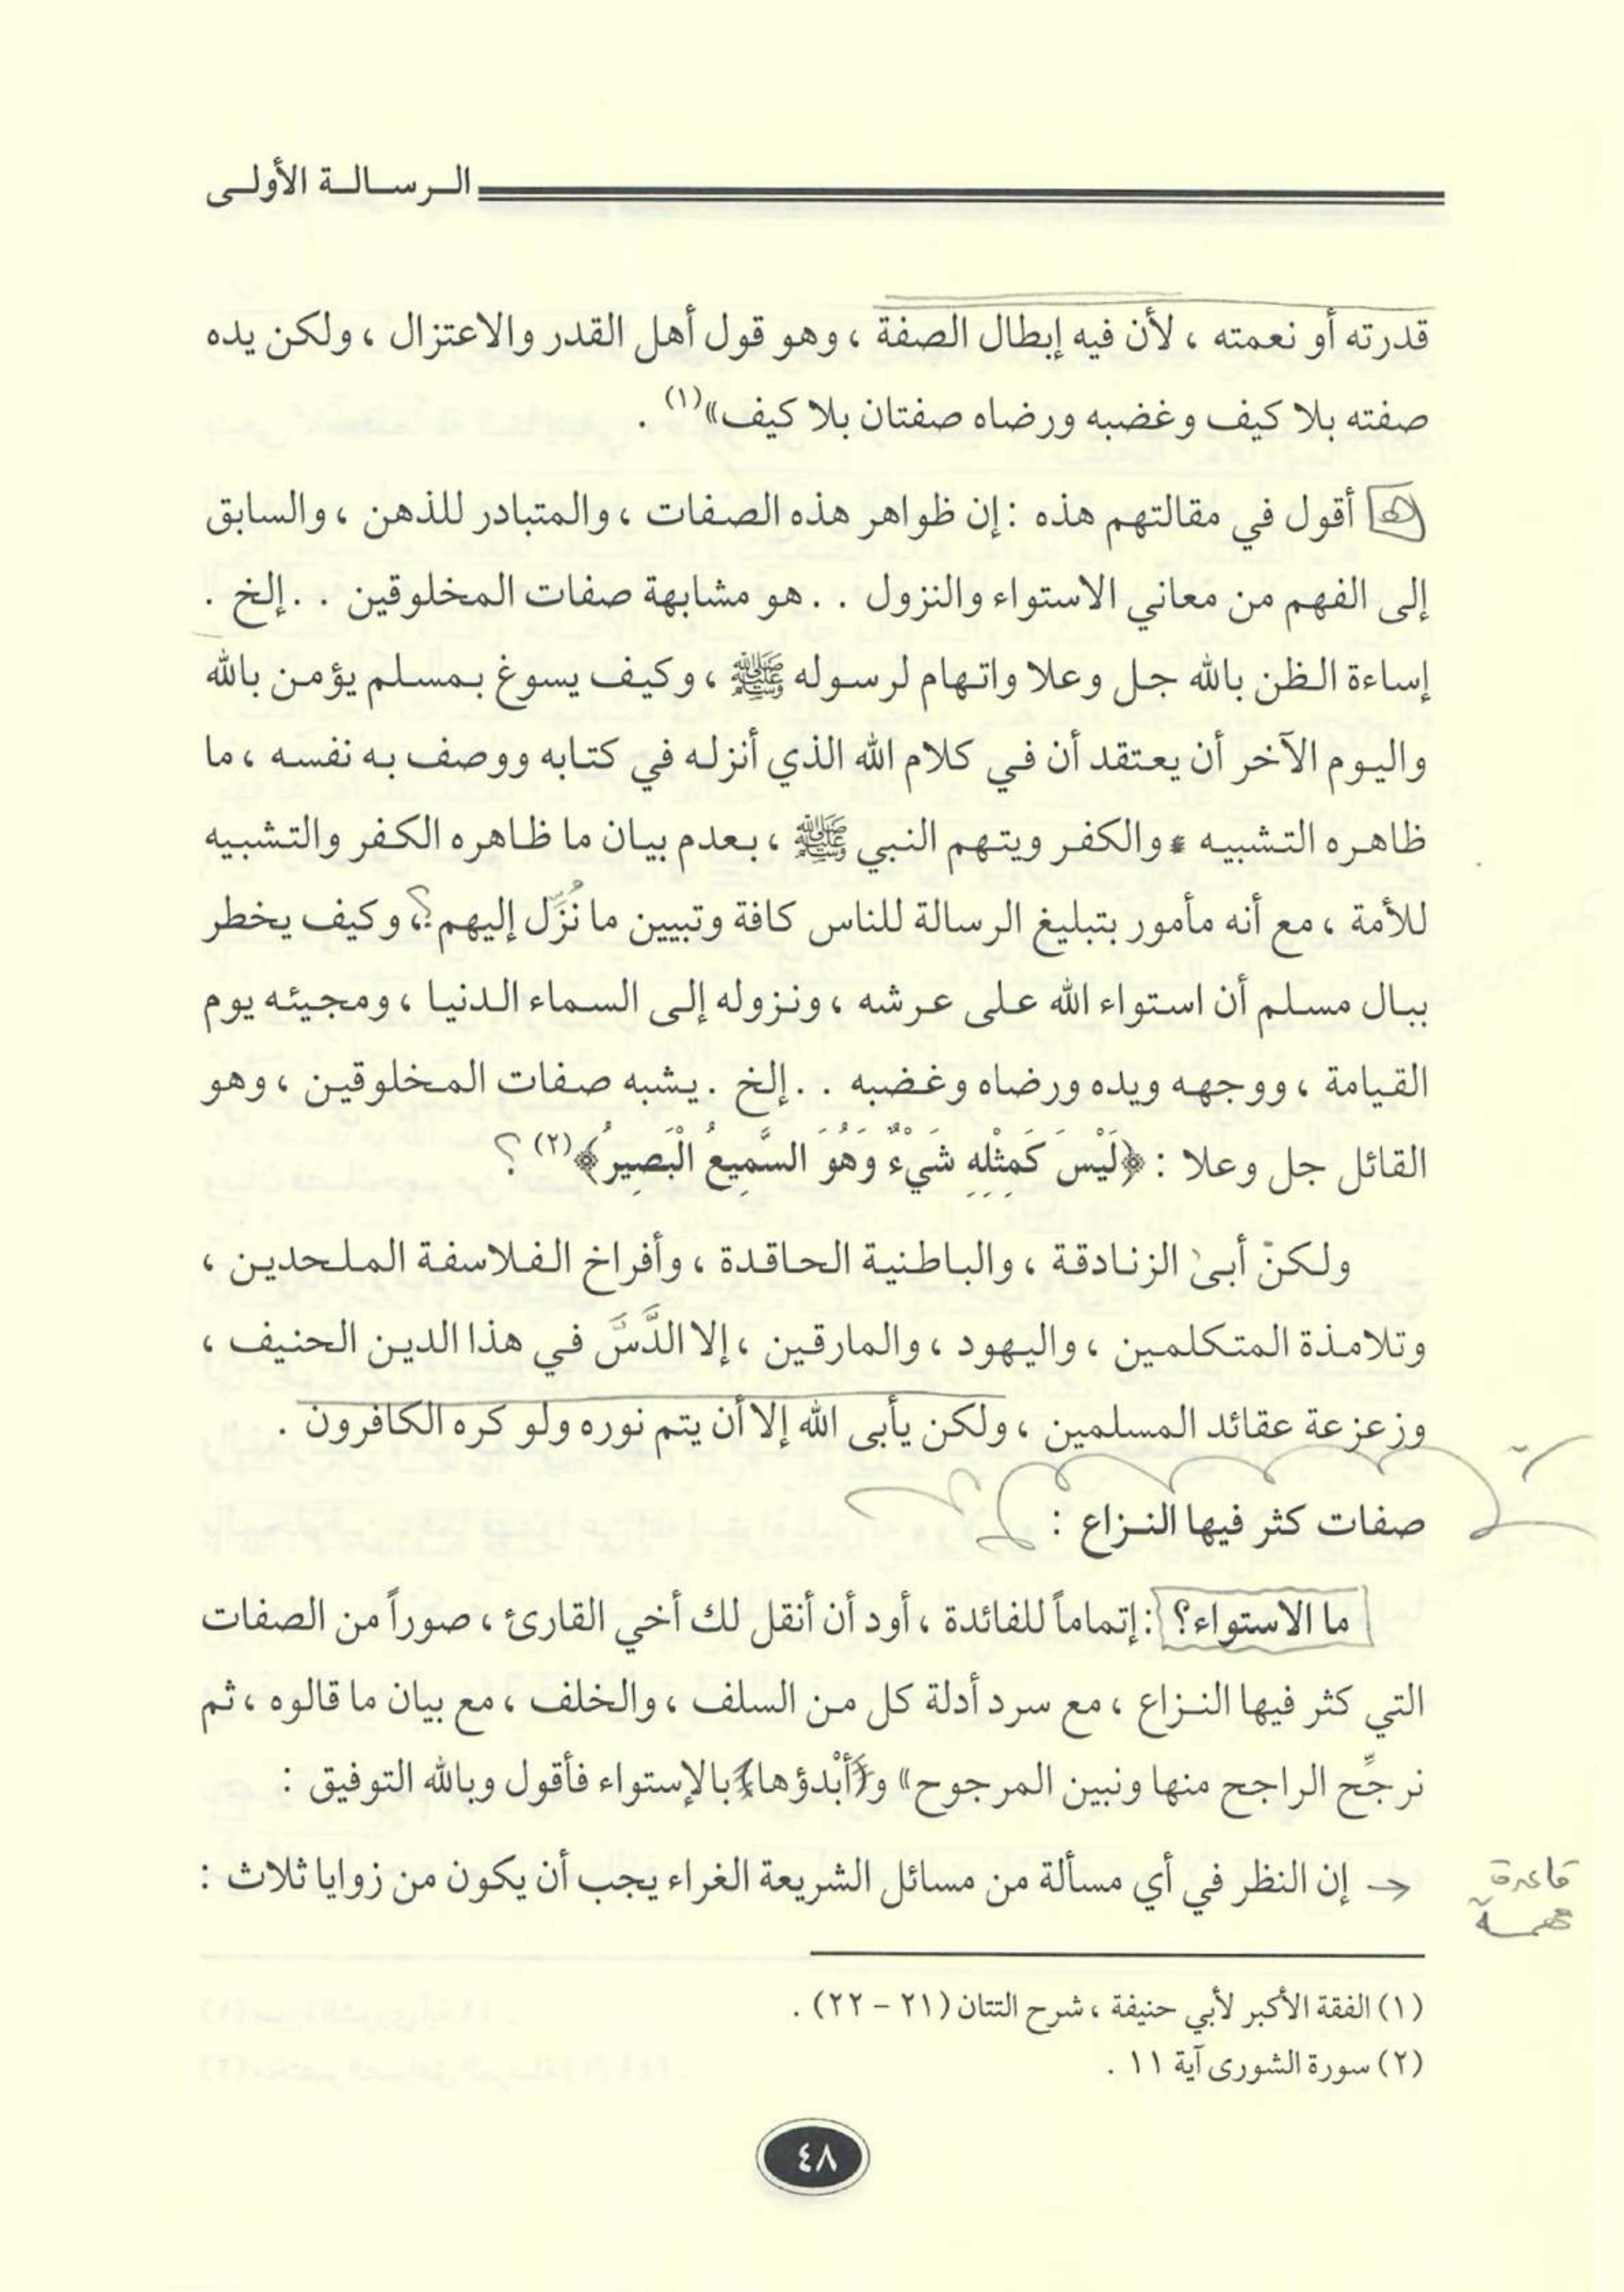 الرسالة الأولى
قدرته أو نعمته ، لأن فيه إبطال الصفة ، وهو قول أهل القدر والاعتزال ، ولكن يده
صفته بلا كيف وغضبه ورضاه صفتان بلا كيف»(١) .
أقول في مقالتهم هذه : إن ظواهر هذه الصفات ، والمتبادر للذهن ، والسابق
إلى الفهم من معاني الاستواء والنزول . . هو مشابهة صفات المخلوقين . . إلخ .
إساءة الظن بالله جل وعلا واتهام لرسوله ﷺ ، وكيف يسوغ بمسلم يؤمن بالله
واليوم الآخر أن يعتقد أن في كلام الله الذي أنزله في كتابه ووصف به نفسه ، ما
ظاهره التشبيه والكفر ويتهم النبي ﷺ ، بعدم بيان ما ظاهره الكفر والتشبيه
للأمة ، مع أنه مأمور بتبليغ الرسالة للناس كافة وتبيين ما نُزِّل إليهم؟ ، وكيف يخطر
ببال مسلم أن استواء الله على عرشه ، ونزوله إلى السماء الدنيا ، ومجيئه يوم
القيامة ، ووجهه ويده ورضاه وغضبه . . إلخ . يشبه صفات المخلوقين ، وهو
القائل جل وعلا : ﴿لَيْسَ كَمِثْلِهِ شَيْءٌ وَهُوَ السَّمِيعُ الْبَصِيرُ﴾(٢) ؟
ولكنّ أبىٰ الزنادقة ، والباطنية الحاقدة ، وأفراخ الفلاسفة الملحدين ،
وتلامذة المتكلمين ، واليهود ، والمارقين ، إلا الدَّسَّ في هذا الدين الحنيف ،
وزعزعة عقائد المسلمين ، ولكن يأبى الله إلا أن يتم نوره ولو كره الكافرون .
صفات كثر فيها النـزاع :
ما الاستواء؟ : إتماماً للفائدة ، أود أن أنقل لك أخي القارئ ، صوراً من الصفات
التي كثر فيها النـزاع ، مع سرد أدلة كل من السلف ، والخلف ، مع بيان ما قالوه ، ثم
نرجِّح الراجح منها ونبين المرجوح» و(أبْدؤها) بالإستواء فأقول وبالله التوفيق :
إن النظر في أي مسألة من مسائل الشريعة الغراء يجب أن يكون من زوايا ثلاث :
قاعدة
مهمة
(١) الفقة الأكبر لأبي حنيفة ، شرح التتان (٢١ – ٢٢) .
(٢) سورة الشورى آية ١١ .
٤٨